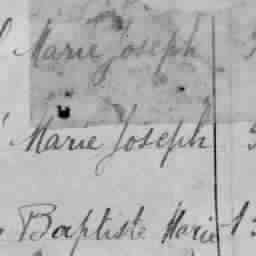 Marie Joseph
Marie Joseph
Baptiste Marie